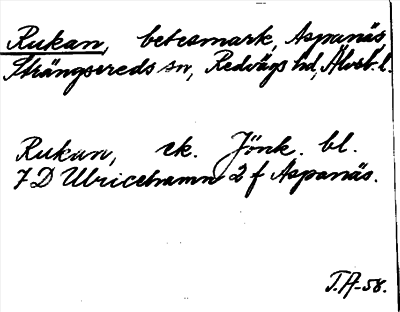 Rukan, betesmark, Aspanäs,
Strängsereds sn, Redvägs hd, Älvsb. l.
Rukan, ek. Jönk. bl.
7 D Ulricehamn 2 f Aspanäs.
T.A-58.